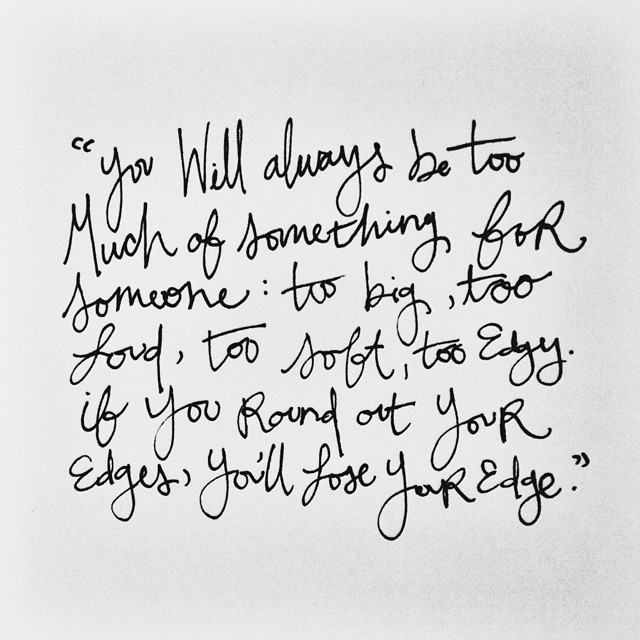 "You Will always be too
Much of something foR
someone: too big, too
loud, too soft, too Edgy.
if You Round out YouR
Edges, You'll lose YouR Edge."